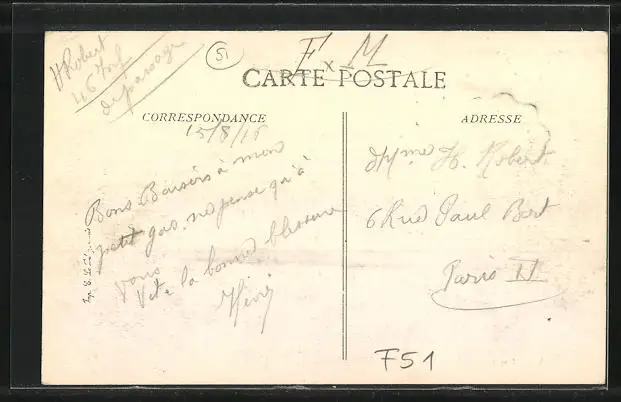 H Robert
46 Inf
de passage
51
F x M
CARTE POSTALE
CORRESPONDANCE
ADRESSE
15/8/16
Bons Baisers à mon
petit gas. ne pense qu'à
vous
Vite la bonne blessure
Henri
Mme H. Robert
6 Rue Paul Bert
Paris XI
F51